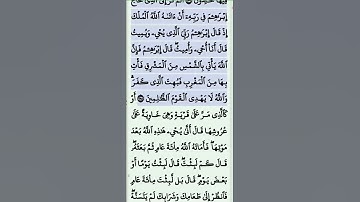 فِيهَا خَٰلِدُونَ ۝ أَلَمْ تَرَ إِلَى ٱلَّذِى حَآجَّ
إِبْرَٰهِـۧمَ فِى رَبِّهِۦٓ أَنْ ءَاتَىٰهُ ٱللَّهُ ٱلْمُلْكَ
إِذْ قَالَ إِبْرَٰهِـۧمُ رَبِّىَ ٱلَّذِى يُحْىِۦ وَيُمِيتُ
قَالَ أَنَا۠ أُحْىِۦ وَأُمِيتُ ۖ قَالَ إِبْرَٰهِـۧمُ فَإِنَّ
ٱللَّهَ يَأْتِى بِٱلشَّمْسِ مِنَ ٱلْمَشْرِقِ فَأْتِ
بِهَا مِنَ ٱلْمَغْرِبِ فَبُهِتَ ٱلَّذِى كَفَرَ ۗ
وَٱللَّهُ لَا يَهْدِى ٱلْقَوْمَ ٱلظَّٰلِمِينَ ۝ أَوْ
كَٱلَّذِى مَرَّ عَلَىٰ قَرْيَةٍ وَهِىَ خَاوِيَةٌ عَلَىٰ
عُرُوشِهَا قَالَ أَنَّىٰ يُحْىِۦ هَٰذِهِ ٱللَّهُ بَعْدَ
مَوْتِهَا ۖ فَأَمَاتَهُ ٱللَّهُ مِا۟ئَةَ عَامٍ ثُمَّ بَعَثَهُۥ ۖ
قَالَ كَمْ لَبِثْتَ ۖ قَالَ لَبِثْتُ يَوْمًا أَوْ
بَعْضَ يَوْمٍ ۖ قَالَ بَل لَّبِثْتَ مِا۟ئَةَ عَامٍ
فَٱنظُرْ إِلَىٰ طَعَامِكَ وَشَرَابِكَ لَمْ يَتَسَنَّهْ ۖ